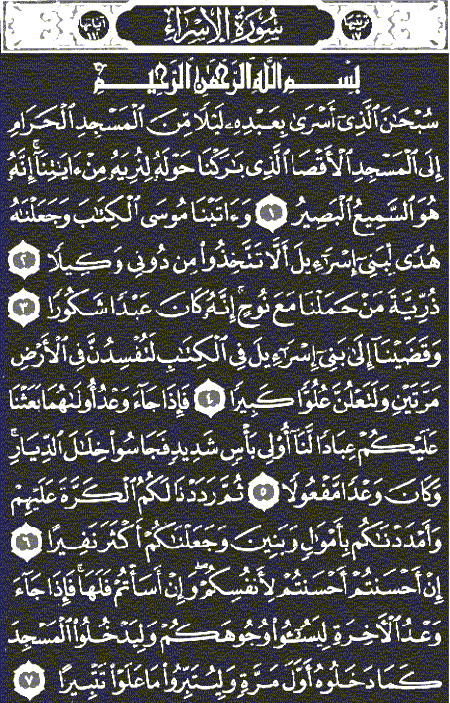 سُورَةُ الإِسْرَاءِ
بِسْمِ اللَّهِ الرَّحْمَٰنِ الرَّحِيمِ
سُبْحَٰنَ ٱلَّذِىٓ أَسْرَىٰ بِعَبْدِهِۦ لَيْلًا مِّنَ ٱلْمَسْجِدِ ٱلْحَرَامِ
إِلَى ٱلْمَسْجِدِ ٱلْأَقْصَا ٱلَّذِى بَٰرَكْنَا حَوْلَهُۥ لِنُرِيَهُۥ مِنْ ءَايَٰتِنَآ ۚ إِنَّهُۥ
هُوَ ٱلسَّمِيعُ ٱلْبَصِيرُ ١ وَءَاتَيْنَا مُوسَى ٱلْكِتَٰبَ وَجَعَلْنَٰهُ
هُدًى لِّبَنِىٓ إِسْرَٰٓءِيلَ أَلَّا تَتَّخِذُوا۟ مِن دُونِى وَكِيلًا ٢
ذُرِّيَّةَ مَنْ حَمَلْنَا مَعَ نُوحٍ ۚ إِنَّهُۥ كَانَ عَبْدًا شَكُورًا ٣
وَقَضَيْنَآ إِلَىٰ بَنِىٓ إِسْرَٰٓءِيلَ فِى ٱلْكِتَٰبِ لَتُفْسِدُنَّ فِى ٱلْأَرْضِ
مَرَّتَيْنِ وَلَتَعْلُنَّ عُلُوًّا كَبِيرًا ٤ فَإِذَا جَآءَ وَعْدُ أُولَىٰهُمَا بَعَثْنَا
عَلَيْكُمْ عِبَادًا لَّنَآ أُو۟لِى بَأْسٍ شَدِيدٍ فَجَاسُوا۟ خِلَٰلَ ٱلدِّيَارِ ۚ
وَكَانَ وَعْدًا مَّفْعُولًا ٥ ثُمَّ رَدَدْنَا لَكُمُ ٱلْكَرَّةَ عَلَيْهِمْ
وَأَمْدَدْنَٰكُم بِأَمْوَٰلٍ وَبَنِينَ وَجَعَلْنَٰكُمْ أَكْثَرَ نَفِيرًا ٦
إِنْ أَحْسَنتُمْ أَحْسَنتُمْ لِأَنفُسِكُمْ ۖ وَإِنْ أَسَأْتُمْ فَلَهَا ۚ فَإِذَا جَآءَ
وَعْدُ ٱلْءَاخِرَةِ لِيَسُۥٓـُٔوا۟ وُجُوهَكُمْ وَلِيَدْخُلُوا۟ ٱلْمَسْجِدَ
كَمَا دَخَلُوهُ أَوَّلَ مَرَّةٍ وَلِيُتَبِّرُوا۟ مَا عَلَوْا۟ تَتْبِيرًا ٧